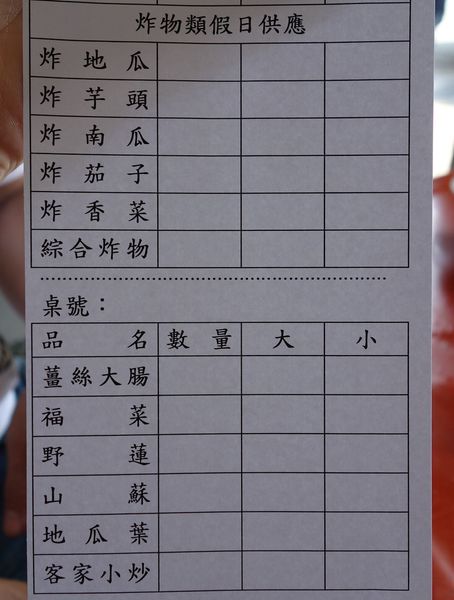 炸物類假日供應
炸地瓜
炸芋頭
炸南瓜
炸茄子
炸香菜
綜合炸物
桌號：
品名 數量 大 小
薑絲大腸
福菜
野蓮
山蘇
地瓜葉
客家小炒